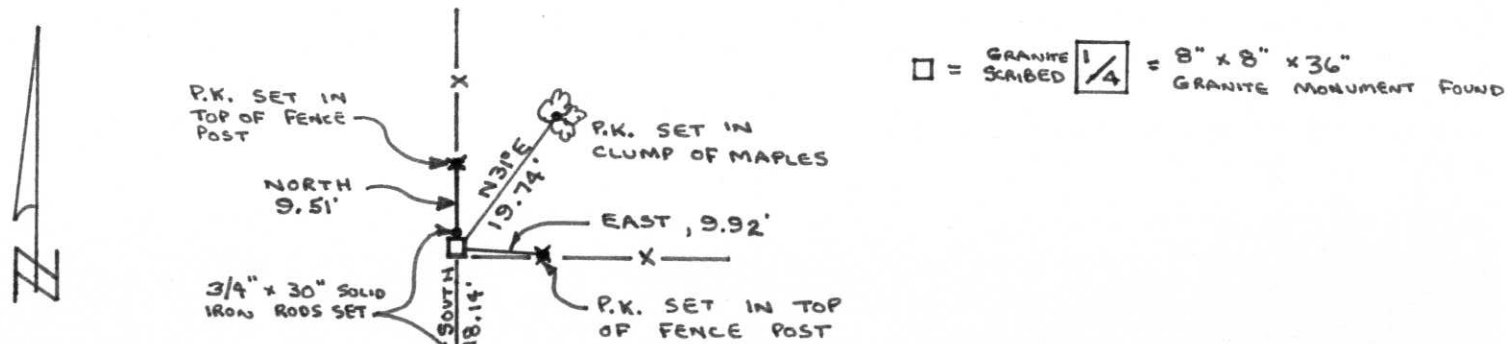 P.K. SET IN
TOP OF FENCE
POST
NORTH
9.51'
3/4" x 30" SOLID
IRON RODS SET
N31°E
19.74'
P.K. SET IN
CLUMP OF MAPLES
EAST, 9.92'
X
X
P.K. SET IN TOP
OF FENCE POST
SOUTH
8.14'
N
GRANITE
SCRIBED
1/4
= 8" x 8" x 36"
GRANITE MONUMENT FOUND